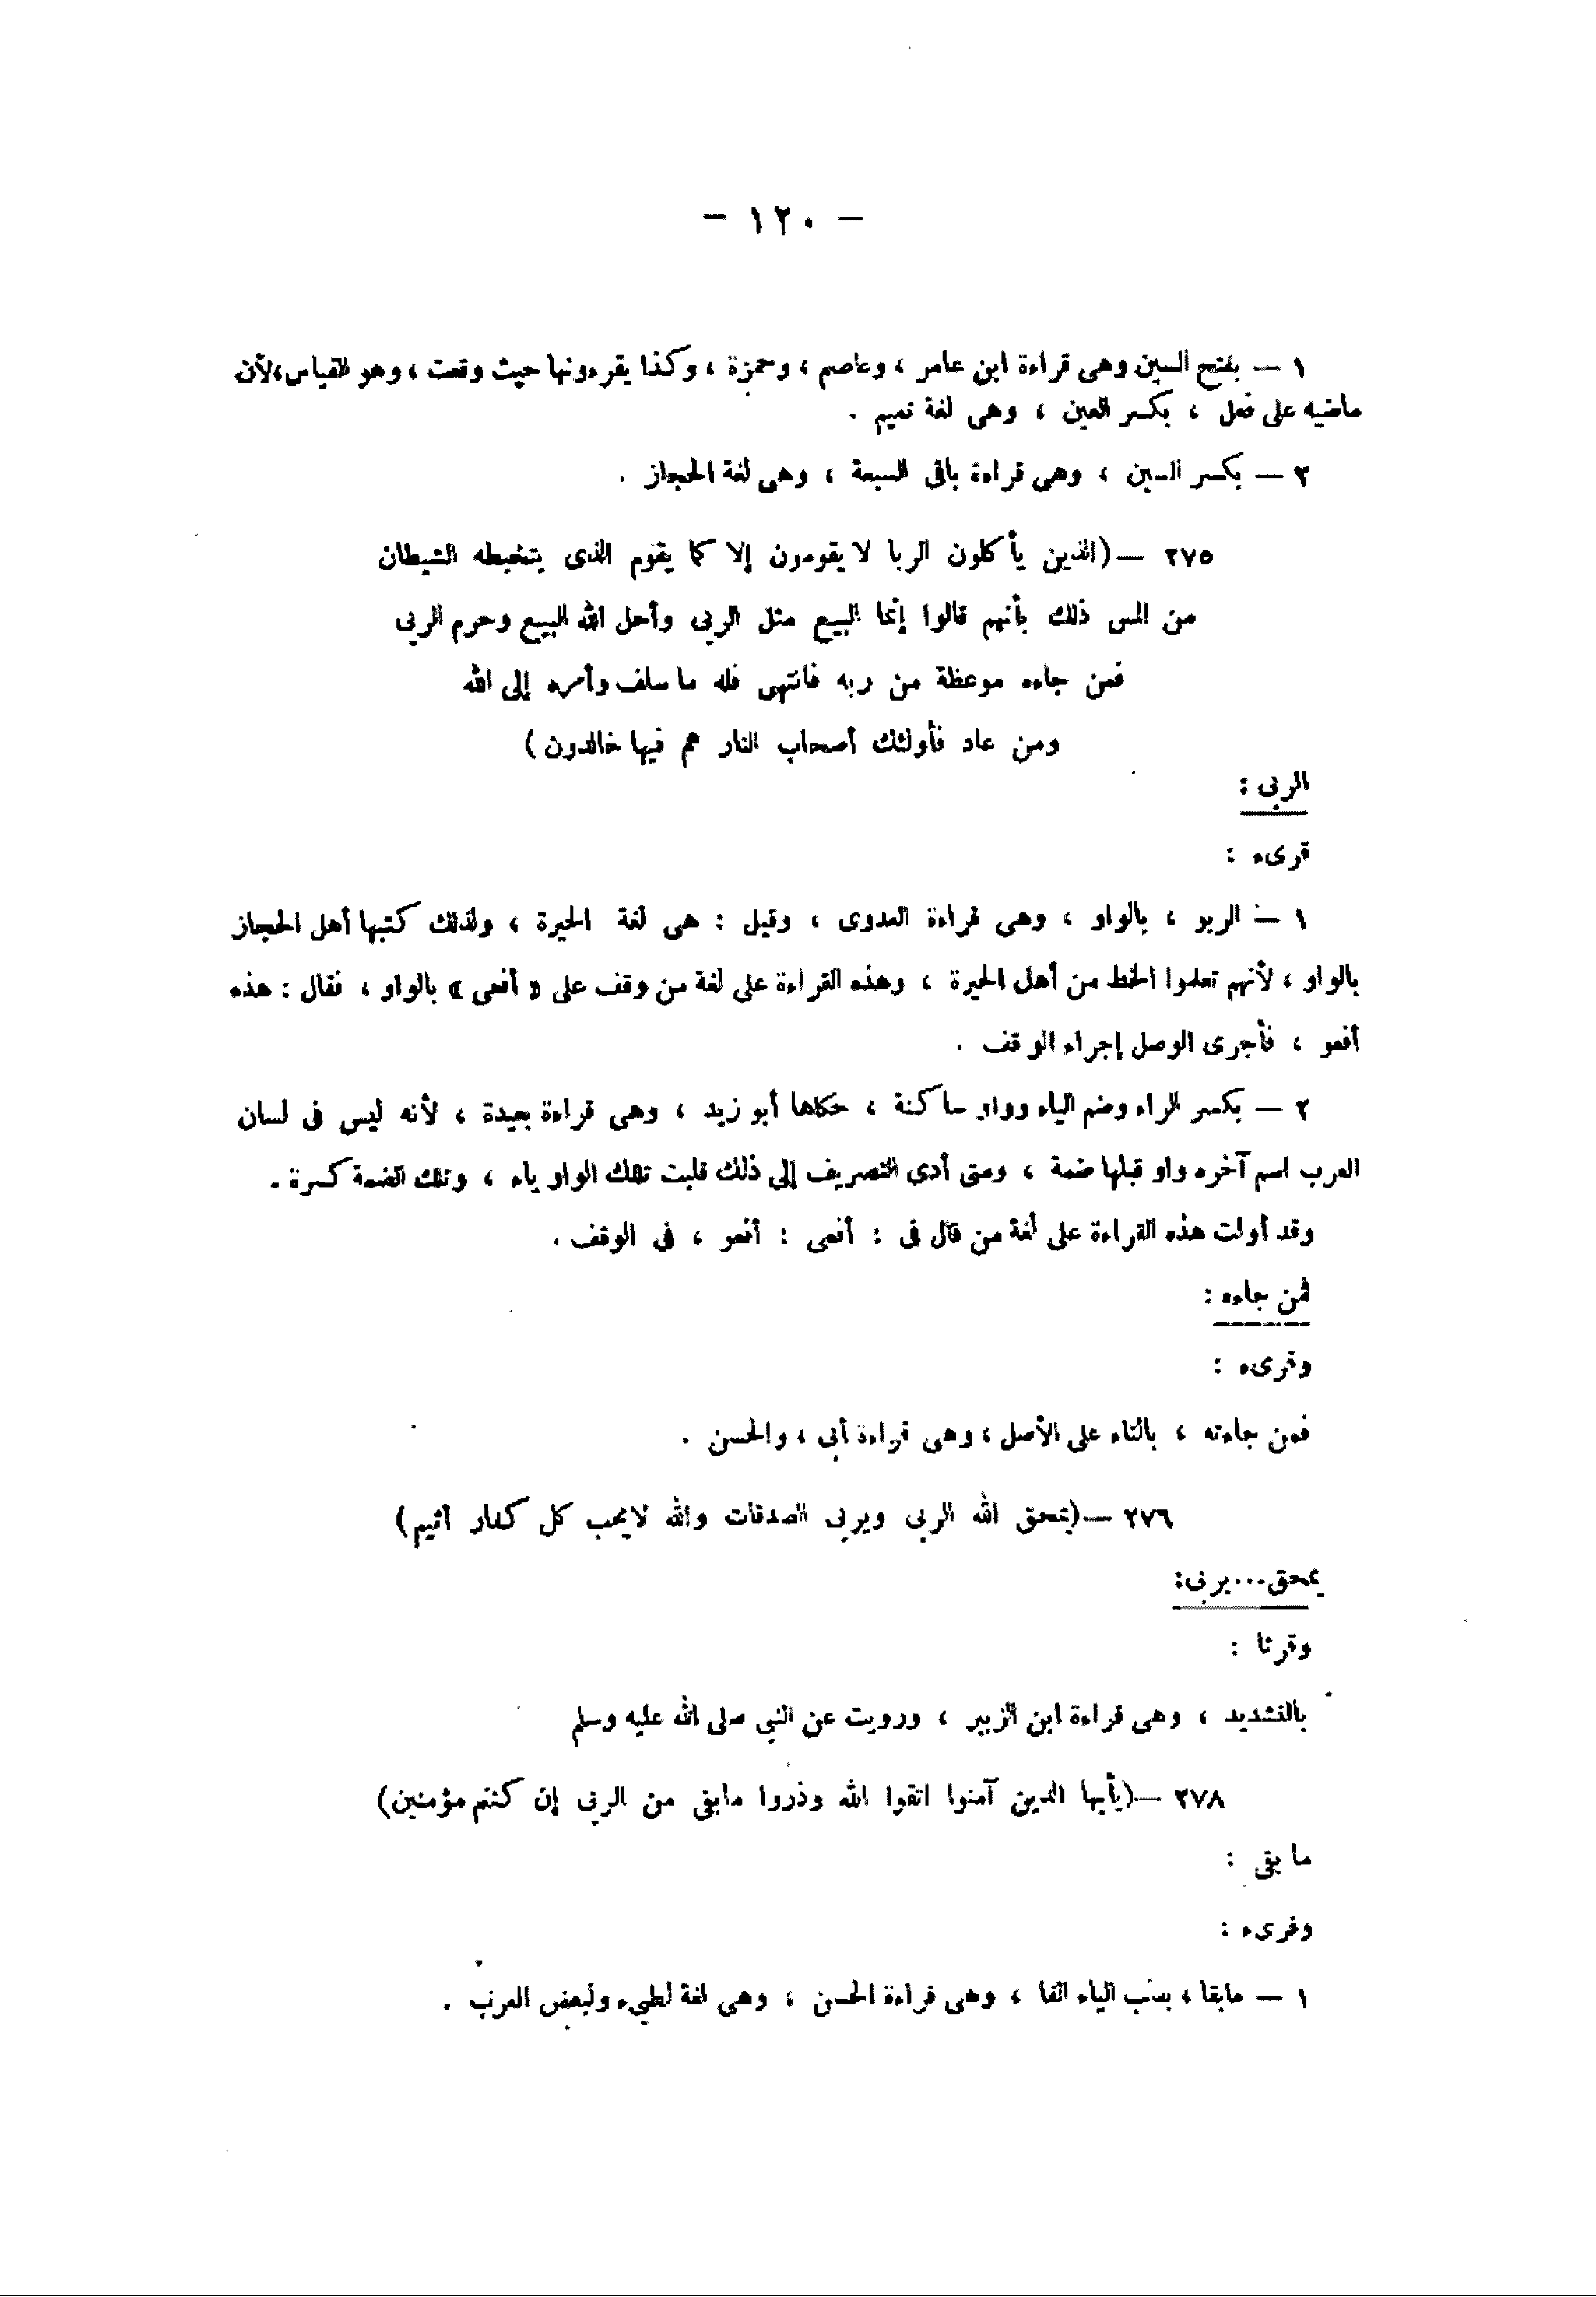 – ١٢٠ –
١ – بفتح السين وهى قراءة ابن عامر ، وعاصم ، وحمزة ، وكذا يقرءونها حيث وقعت ، وهو القياس ، لأن
ماضيه على فعل ، بكسر العين ، وهى لغة تميم .
٢ – بكسر السين ، وهى قراءة باقى السبعة ، وهى لغة الحجاز .
٢٧٥ – (الذين يأكلون الربا لا يقومون إلا كما يقوم الذى يتخبطه الشيطان
من المس ذلك بأنهم قالوا إنما البيع مثل الربى وأحل الله البيع وحرم الربى
فمن جاءه موعظة من ربه فانتهى فله ما سلف وأمره إلى الله
ومن عاد فأولئك أصحاب النار هم فيها خالدون )
الربى :
قرىء :
١ – الربو ، بالواو ، وهى قراءة العدوى ، وقيل : هى لغة الحيرة ، ولذلك كتبها أهل الحجاز
بالواو ، لأنهم تعلموا الخط من أهل الحيرة ، وهذه القراءة على لغة من وقف على « أفعى » بالواو ، فقال : هذه
أفعو ، فأجرى الوصل إجراء الوقف .
٢ – بكسر الراء وضم الياء وواو ساكنة ، حكاها أبو زيد ، وهى قراءة بعيدة ، لأنه ليس فى لسان
العرب اسم آخره واو قبلها ضمة ، ومتى أدى التصريف إلى ذلك قلبت تلك الواو ياء ، وتلك الضمة كسرة .
وقد أولت هذه القراءة على لغة من قال فى : أفعى : أفعو ، فى الوقف .
فمن جاءه :
وقرىء :
فمن جاءته ، بالتاء على الأصل ، وهى قراءة أبى ، والحسن .
٢٧٦ – (يمحق الله الربى ويربى الصدقات والله لا يحب كل كفار أثيم)
يمحق ... يربى :
وقرئا :
بالتشديد ، وهى قراءة ابن الزبير ، ورويت عن النبى صلى الله عليه وسلم
٢٧٨ – (يأيها الذين آمنوا اتقوا الله وذروا مابقى من الربى إن كنتم مؤمنين)
ما بقى :
وقرىء :
١ – مابقا ، بقلب الياء ألفا ، وهى قراءة الحسن ، وهى لغة لطيىء ولبعض العرب .